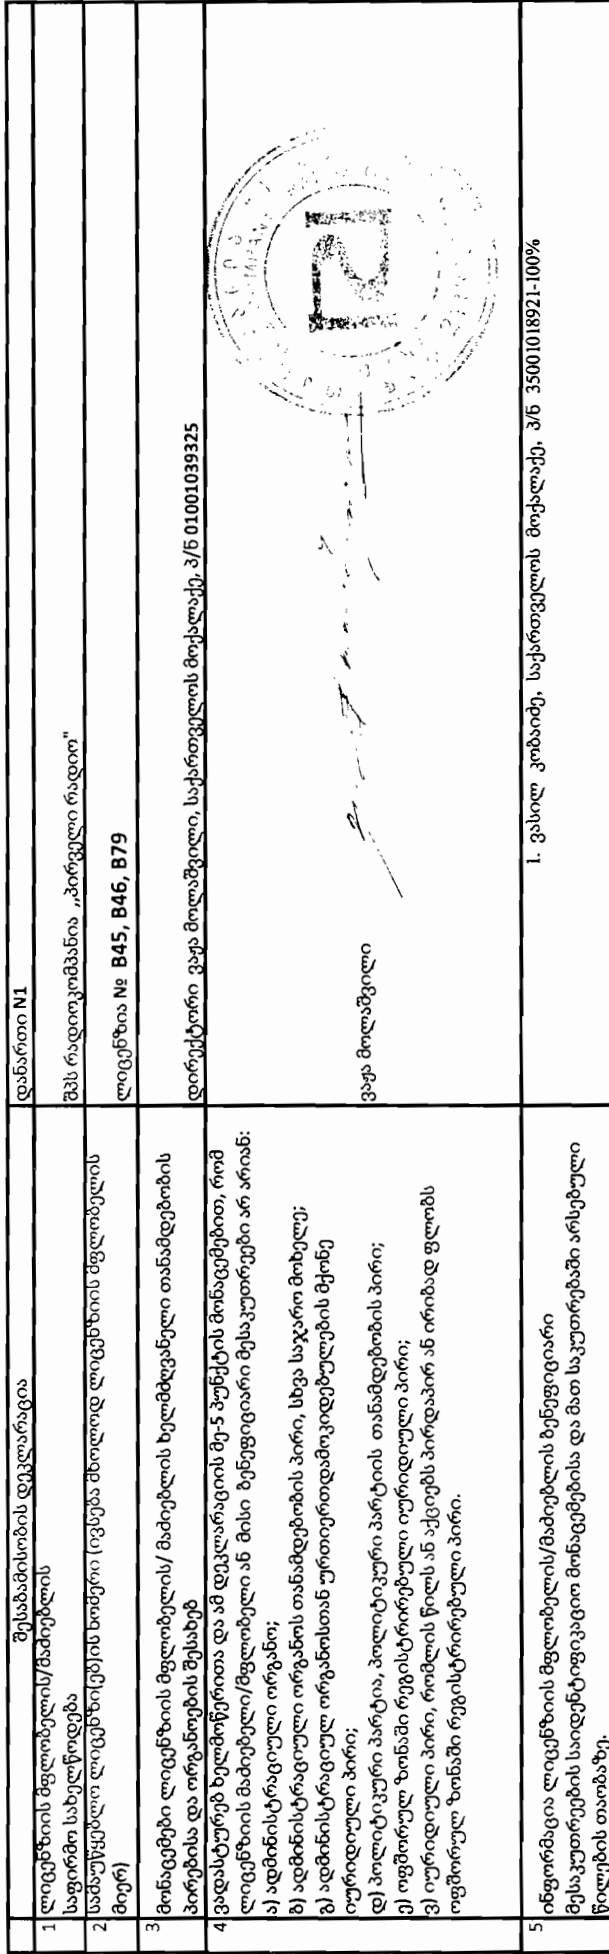 შესაბამისობის დეკლარაცია
დანართი N1
1 ლიცენზიის მფლობელის/მაძიებლის
საფირმო სახელწოდება
შპს რადიოკომპანია „პირველი რადიო"
2 სამაუწყებლო ლიცენზი(ებ)ის ნომერი (ივსება მხოლოდ ლიცენზიის მფლობელის
მიერ)
ლიცენზია № B45, B46, B79
3 მონაცემები ლიცენზიის მფლობელის/ მაძიებლის ხელმძღვანელი თანამდებობის
პირებისა და ორგანოების შესახებ
დირექტორი ვაჟა მოლაშვილი, საქართველოს მოქალაქე, პ/ნ 01001039325
4 ვადასტურებ ხელმოწერითა და ამ დეკლარაციის მე-5 პუნქტის მონაცემებით, რომ
ლიცენზიის მაძიებელი/მფლობელი ან მისი ბენეფიციარი მესაკუთრეები არ არიან:
ა) ადმინისტრაციული ორგანო;
ბ) ადმინისტრაციული ორგანოს თანამდებობის პირი, სხვა საჯარო მოხელე;
გ) ადმინისტრაციულ ორგანოსთან ურთიერთდამოკიდებულების მქონე
იურიდიული პირი;
დ) პოლიტიკური პარტია, პოლიტიკური პარტიის თანამდებობის პირი;
ე) ოფშორულ ზონაში რეგისტრირებული იურიდიული პირი;
ვ) იურიდიული პირი, რომლის წილს ან აქციებს პირდაპირ ან ირიბად ფლობს
ოფშორულ ზონაში რეგისტრირებული პირი.
ვაჟა მოლაშვილი
5 ინფორმაცია ლიცენზიის მფლობელის/მაძიებლის ბენეფიციარი
მესაკუთრეების საიდენტიფიკაციო მონაცემებისა და მათ საკუთრებაში არსებული
წილების თაობაზე.
1. ვასილ კობაიძე, საქართველოს მოქალაქე, პ/ნ 35001018921-100%